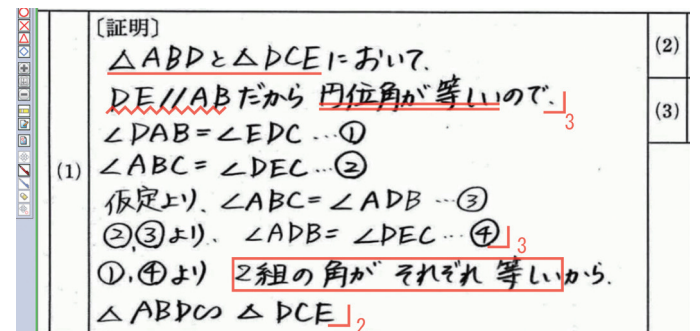 〔証明〕
△ABDと△DCEにおいて、
DE//ABだから 円位角が等しいので、
3
∠DAB=∠EDC…①
(1)
∠ABC=∠DEC…②
仮定より、∠ABC=∠ADB…③
②,③より、∠ADB=∠DEC…④
3
①,④より 2組の角が それぞれ 等しいから、
△ABD∽△DCE
2
(2)
(3)